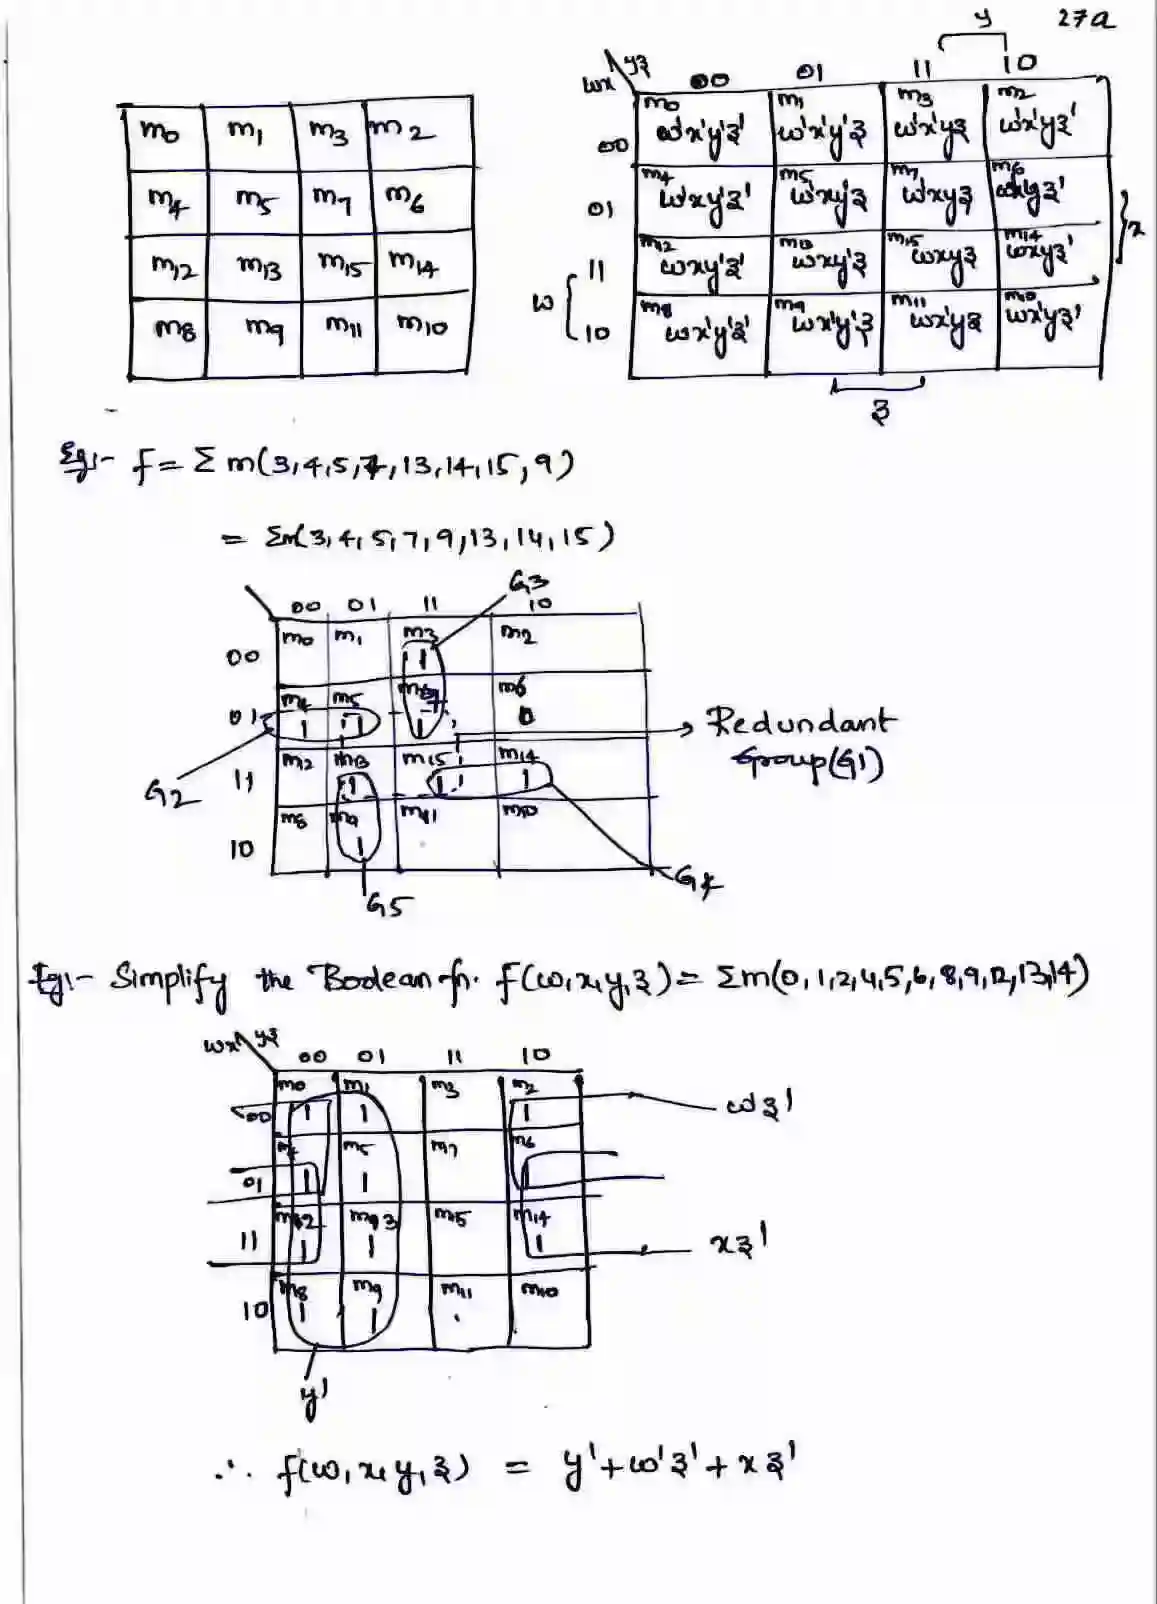 27a
m0 m1 m3 m2
m4 m5 m7 m6
m12 m13 m15 m14
m8 m9 m11 m10
y
wx yz 00 01 11 10
00 m0 w'x'y'z' m1 w'x'y'z m3 w'x'yz m2 w'x'yz'
01 m4 w'xy'z' m5 w'xy'z m7 w'xyz m6 w'xyz'
x
11 m12 wxy'z' m13 wxy'z m15 wxyz m14 wxyz'
w
10 m8 wx'y'z' m9 wx'y'z m11 wx'yz m10 wx'yz'
z
Eg:- f = Σ m(3,4,5,7,13,14,15,9)
= Σm(3,4,5,7,9,13,14,15)
G3
00 01 11 10
00 m0 m1 m3 1 m2
01 m4 1 m5 1 m7 1 m6 0
Redundant
Group(G1)
G2
11 m12 m13 1 m15 1 m14 1
10 m8 m9 1 m11 m10
G4
G5
Eg:- Simplify the Boolean fn. f(w,x,y,z) = Σm(0,1,2,4,5,6,8,9,12,13,14)
wx yz 00 01 11 10
00 m0 1 m1 1 m3 m2 1 w'z'
01 m4 1 m5 1 m7 m6 1
11 m12 1 m13 1 m15 m14 1 xz'
10 m8 1 m9 1 m11 m10
y'
∴ f(w,x,y,z) = y'+w'z'+xz'